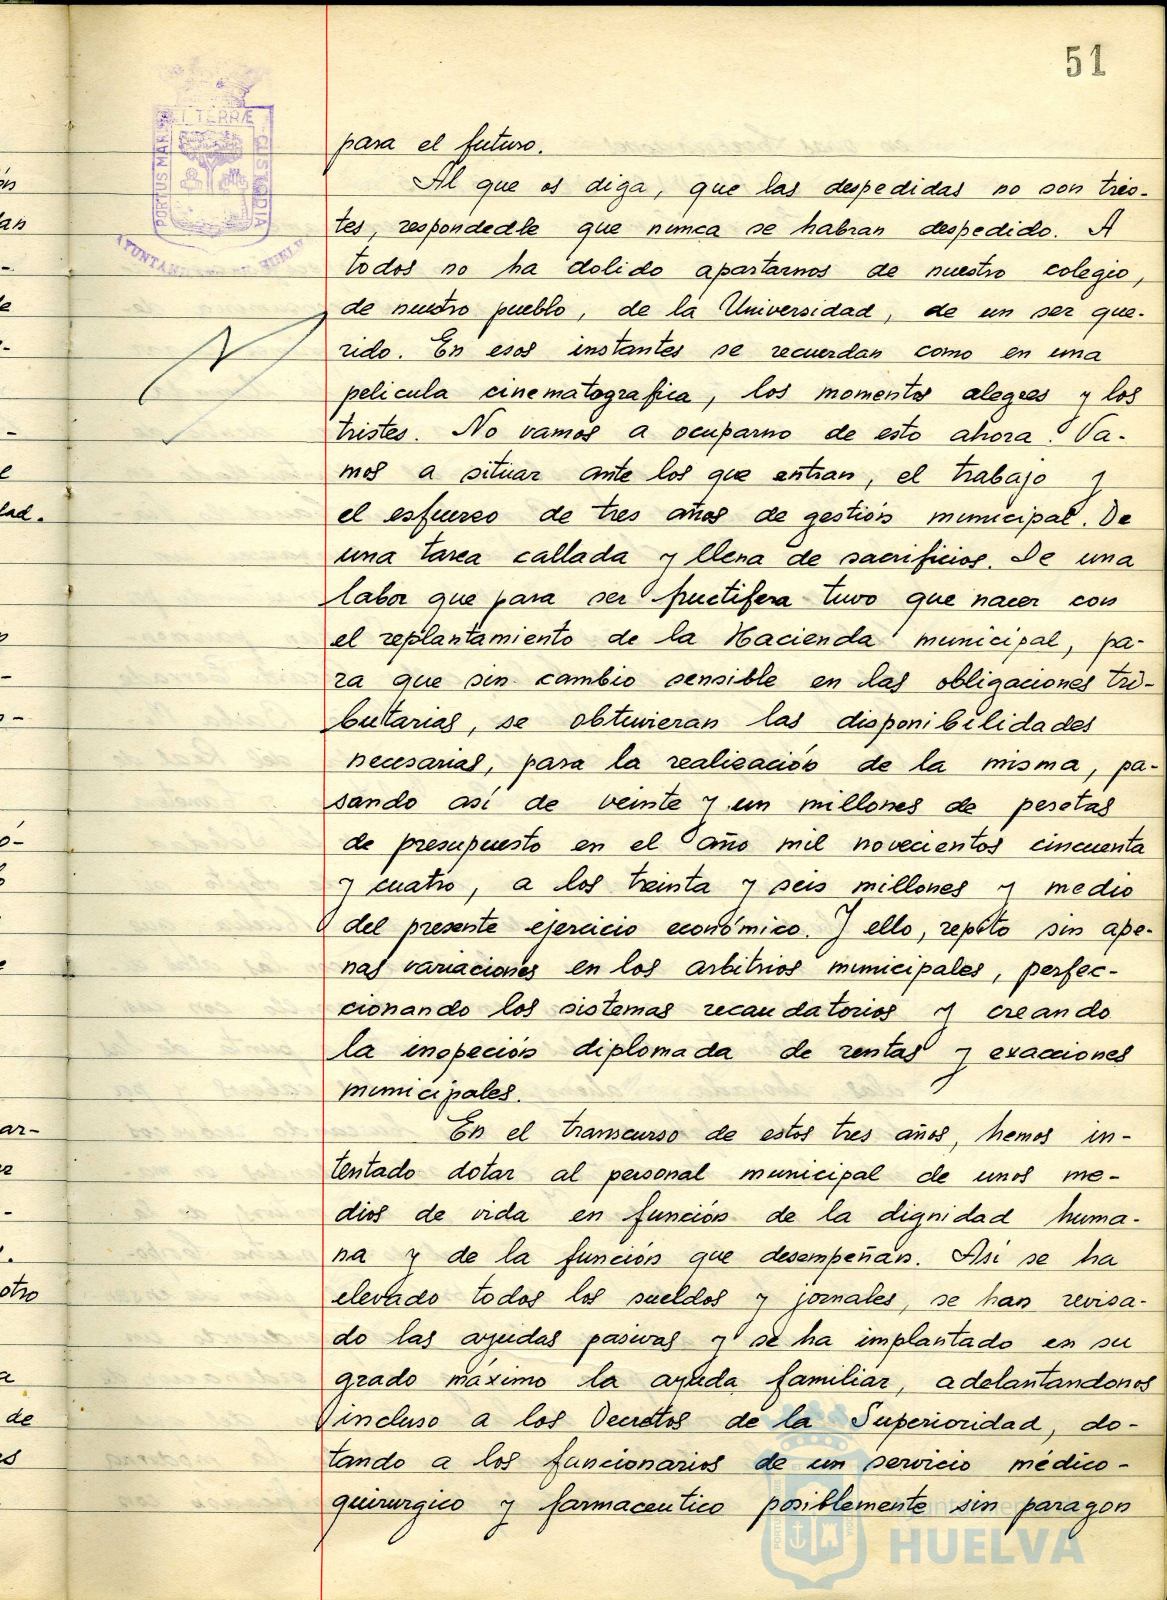 51
ET TERRÆ
PORTUS MARIS
CUSTODIA
AYUNTAMIENTO DE HUELVA
para el futuro.
Al que os diga, que las despedidas no son tris-
tes, respondedle que nunca se habran despedido. A
todos no ha dolido apartarnos de nuestro colegio,
de nuestro pueblo, de la Universidad, de un ser que-
rido. En esos instantes se recuerdan como en una
pelicula cinematografica, los momentos alegres y los
tristes. No vamos a ocuparno de esto ahora. Va-
mos a situar ante los que entran, el trabajo y
el esfuerzo de tres años de gestión municipal. De
una tarea callada y llena de sacrificios. De una
labor que para ser fructifera tuvo que nacer con
el replantamiento de la Hacienda municipal, pa-
ra que sin cambio sensible en las obligaciones tri-
butarias, se obtuvieran las disponibilidades
necesarias, para la realización de la misma, pa-
sando así de veinte y un millones de pesetas
de presupuesto en el año mil novecientos cincuenta
y cuatro, a los treinta y seis millones y medio
del presente ejercicio económico. Y ello, repito sin ape-
nas variaciones en los arbitrios municipales, perfec-
cionando los sistemas recaudatorios y creando
la inspeción diplomada de rentas y exacciones
municipales.
En el transcurso de estos tres años, hemos in-
tentado dotar al personal municipal de unos me-
dios de vida en función de la dignidad huma-
na y de la función que desempeñan. Así se ha
elevado todos los sueldos y jornales, se han revisa-
do las ayudas pasivas y se ha implantado en su
grado máximo la ayuda familiar, adelantandonos
incluso a los Decretos de la Superioridad, do-
tando a los funcionarios de un servicio médico-
quirurgico y farmaceutico posiblemente sin paragon
HUELVA